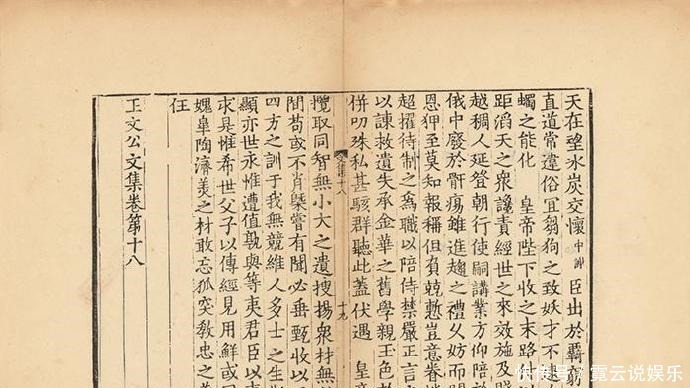 天在望氷炭交懷中謝臣出於羈
直道常違俗冝芻狗之致妖才不
蠲之能化 皇帝陛下收之末路
距滔天之衆讒責經世之來效施及
越稠人延登朝行使嗣講業方仰陪
俄中廢於骭瘍雖進趨之禮乆妨於
恩狎至莫知報稱但負兢慙豈意眷
超擢待制之爲職以陪侍禁嚴正言
以諫救遺失承金華之舊學親玉色
併叨殊私甚駭群聽此蓋伏遇 皇
文集十八
十九
攬取同智無小大之遺搜揚衆材無
間苟或不肖槩嘗有聞必垂甄收以
四方之訓于我無競維人多士之生
顯亦世永惟遭值孰與等夷君臣以
求是惟希世父子以傳經見用鮮或
媿臯陶濟羙之材敢忘狐突敎忠之
任
王文公文集卷第十八
霓云说娱乐